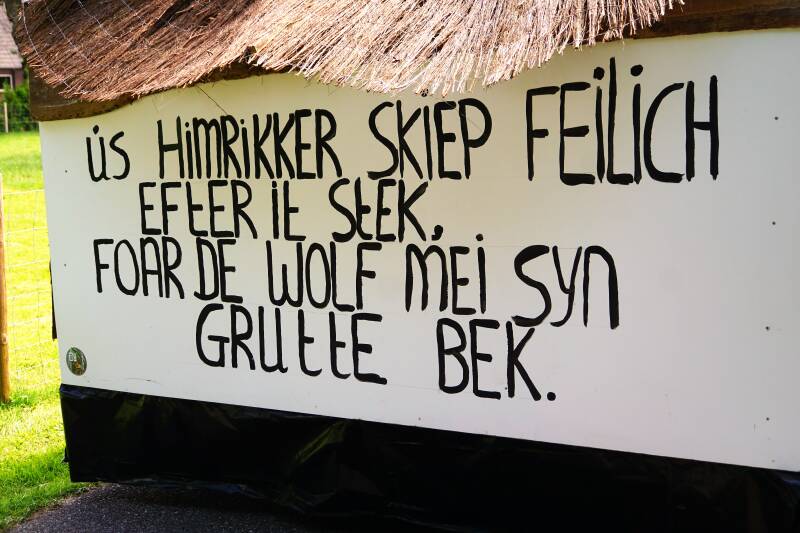 ús HimRiKKER SKIEP FEILICH
EFtER it StEK,
FOAR DE WOLF mEi Syn
GRUttE BEK.